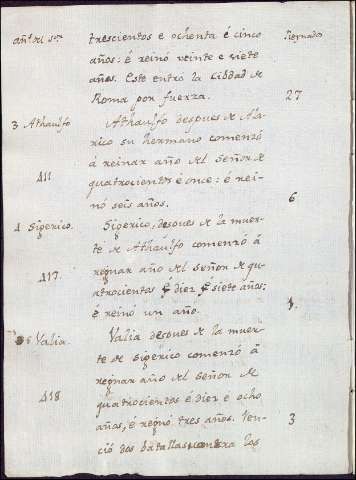 añ.s del S.or
trescientos e ochenta é cinco
Reynados
años: é reinó veinte e siete
años. Este entró la Cibdad de
Roma por fuerza.
27
3 Athaulfo
Athaulfo despues de Ala-
rico su hermano comenzó
á reinar año del Señor de
411
quatrocientos é once: é rei-
nó seis años.
6
4 Sigerico.
Sigerico, despues de la muer-
te de Athaulfo comenzó á
417
regnar año del Señor de qu-
atrocientos é diez é siete años:
é reinó un año.
1.
5 Valia.
Valia despues de la muer-
te de Sigerico comenzó á
regnar año del Señor de
418
quatrocientos é diez e ocho
años, e regnó tres años. Ven-
3
ció dos batallas contra los